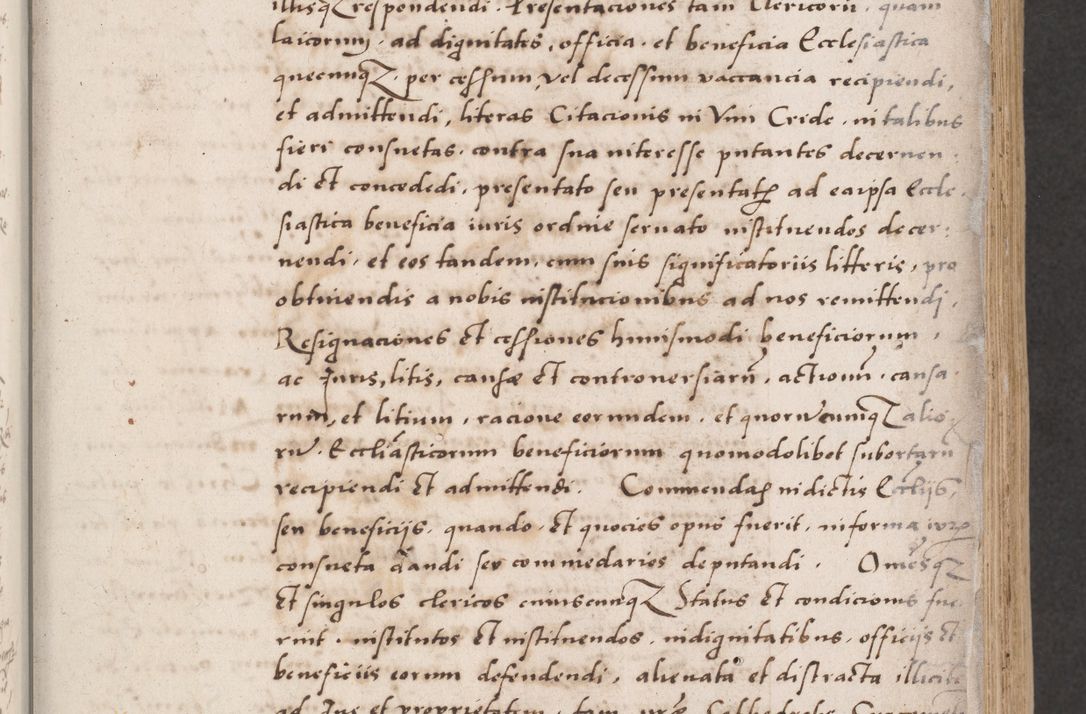 illisq3 respondendi. Presentaciones tam Clericorū. quam
laicorum, ad dignitates, officia. et beneficia Ecclesiastica
quecunq3. per cessum, vel decessum vaccancia recipiendi,
et admittendi, literas Citacionis in Vim Cride. in talibus
fieri consuetas. contra sua interesse putantes decernen:
di et concededi, presentato seu presentat ad eaipsa Eccle.
siastica beneficia iuris ordine servato instituendos decer:
nendi. et eos tandem, cum suis significatoriis litteris, pro
obtinendis a nobis institucionibus ad nos remittendi.
Resignaciones et cessiones huiusmodi beneficiorum,
ac Juris, litis, causæ et controversiarū, actionū. causa.
rum, et litium, racione eorundem. et quorūcumq3 alio
rū. Eccliasticorum beneficiorum quomodolibet subortarū
recipiendi et admittendi. Commendas in dictis Eccliis,
seu beneficijs, quando. et quocies opus fuerit, in forma iur
consueta dandi seu commedarios deputandi. Omēsq3
et singulos clericos cuiuscumq3 Status et condicionis fue
rint. institutos et instituendos. in dignitatibus. officijs et
beneficiis eorum defendendi, alienata et distracta illicite
ad Jus et proprietatem, tam Cathedralis